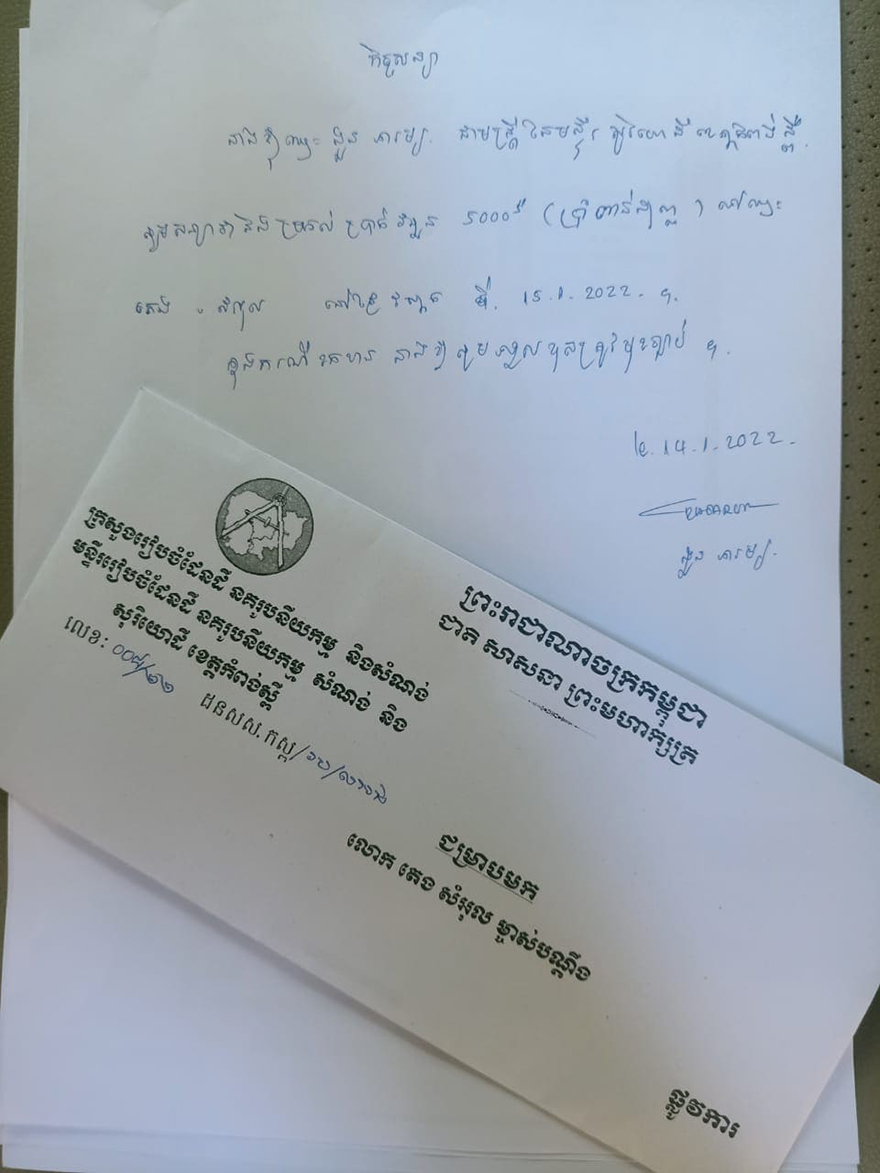 កិច្ចសន្យា
នាងខ្ញុំឈ្មោះ ជាមន្ត្រី នៃមន្ទីរ សូរិយោដី ខេត្តកំពង់ស្ពឺ.
សូមសន្យាថានឹងប្រគល់ប្រាក់ចំនួន 5000$ (ប្រាំពាន់ដុល្លា) ទៅឈ្មោះ
តេង សំអុល នៅថ្ងៃ ទី. 15.1.2022. ។
ក្នុងករណី នាងខ្ញុំសូមទទួលខុសត្រូវមុខច្បាប់ ។
14.1.2022.
ក្រសួងរៀបចំដែនដី នគរូបនីយកម្ម និងសំណង់
មន្ទីររៀបចំដែនដី នគរូបនីយកម្ម សំណង់ និង
សុរិយោដី ខេត្តកំពង់ស្ពឺ
លេខ: ០០៨/២២ ដនសស.កស្ព/
ព្រះរាជាណាចក្រកម្ពុជា
ជាតិ សាសនា ព្រះមហាក្សត្រ
ជម្រាបមក
លោក តេង សំអុល ម្ចាស់បណ្តឹង
ផ្លូវការ